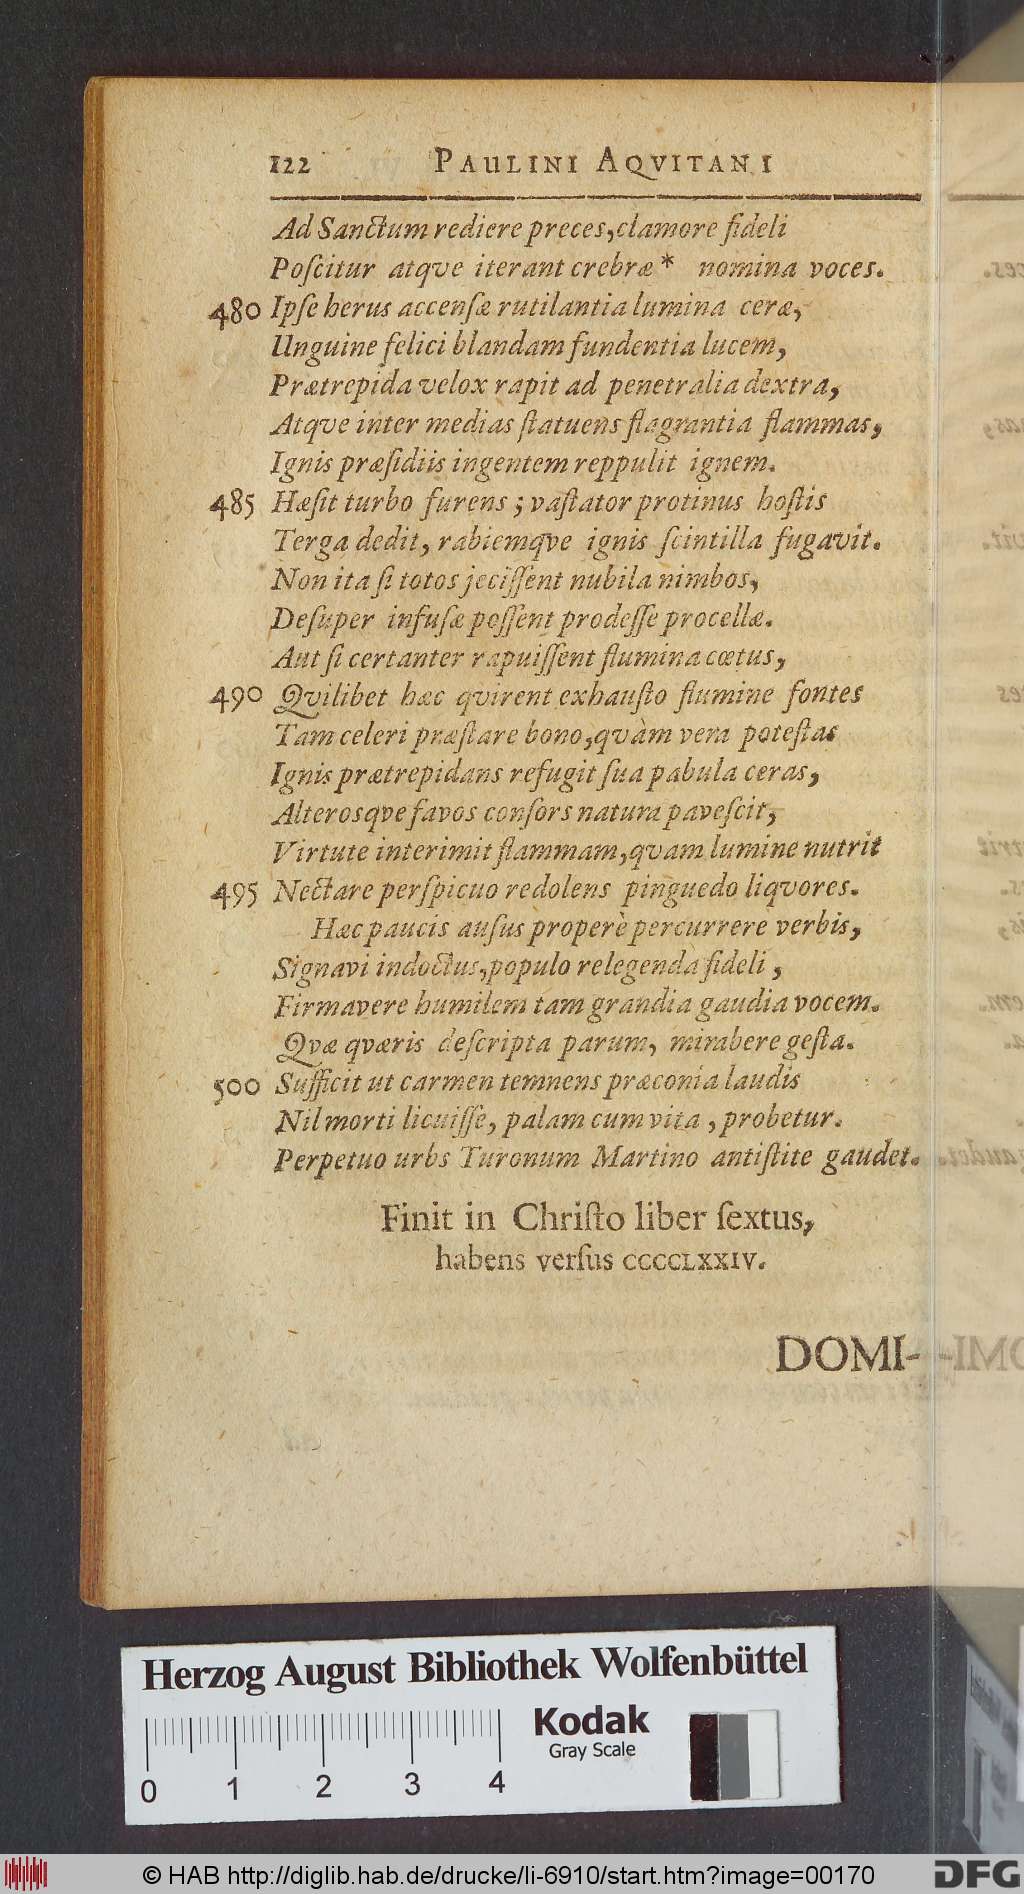 122 PAULINI AQVITANI
Ad Sanctum rediere preces, clamore fideli
Poſcitur atqve iterant crebræ * nomina voces.
480 Ipſe herus accenſæ rutilantia lumina ceræ,
Unguine felici blandam fundentia lucem,
Prætrepida velox rapit ad penetralia dextra,
Atqve inter medias ſtatuens flagrantia flammas,
Ignis præſidiis ingentem reppulit ignem.
485 Hæſit turbo furens; vaſtator protinus hoſtis
Terga dedit, rabiemqve ignis ſcintilla fugavit.
Non ita ſi totos jeciſſent nubila nimbos,
Deſuper infuſæ poſſent prodeſſe procellæ.
Aut ſi certanter rapuiſſent flumina cœtus,
490 Qvilibet hæc qvirent exhauſto flumine fontes
Tam celeri præſtare bono, qvàm vera poteſtas
Ignis prætrepidans refugit ſua pabula ceras,
Alterosqve favos conſors natura paveſcit,
Virtute interimit flammam, qvam lumine nutrit
495 Nectare perſpicuo redolens pinguedo liqvores.
Hæc paucis auſus properè percurrere verbis,
Signavi indoctus, populo relegenda fideli,
Firmavere humilem tam grandia gaudia vocem.
Qvæ qværis deſcripta parum, mirabere geſta.
500 Sufficit ut carmen temnens præconia laudis
Nil morti licuiſſe, palam cum vita, probetur.
Perpetuo urbs Turonum Martino antiſtite gaudet.
Finit in Chriſto liber ſextus,
habens verſus CCCCLXXIV.
DOMI-
Herzog August Bibliothek Wolfenbüttel
Kodak
Gray Scale
0 1 2 3 4
© HAB http://diglib.hab.de/drucke/li-6910/start.htm?image=00170
DFG